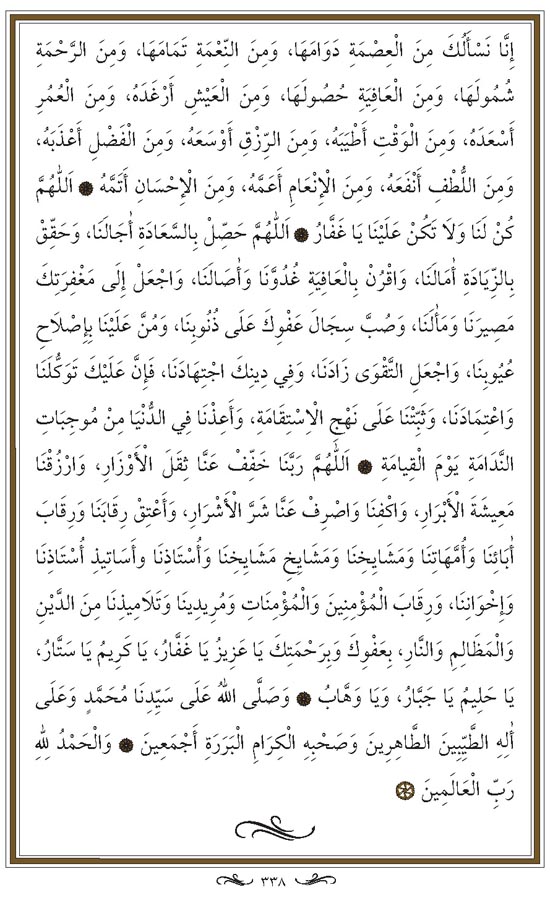 إِنَّا نَسْأَلُكَ مِنَ الْعِصْمَةِ دَوَامَهَا، وَمِنَ النِّعْمَةِ تَمَامَهَا، وَمِنَ الرَّحْمَةِ
شُمُولَهَا، وَمِنَ الْعَافِيَةِ حُصُولَهَا، وَمِنَ الْعَيْشِ أَرْغَدَهُ، وَمِنَ الْعُمُرِ
أَسْعَدَهُ، وَمِنَ الْوَقْتِ أَطْيَبَهُ، وَمِنَ الرِّزْقِ أَوْسَعَهُ، وَمِنَ الْفَضْلِ أَعْذَبَهُ،
وَمِنَ اللُّطْفِ أَنْفَعَهُ، وَمِنَ الْإِنْعَامِ أَعَمَّهُ، وَمِنَ الْإِحْسَانِ أَتَمَّهُ ۞ اَللّٰهُمَّ
كُنْ لَنَا وَلَا تَكُنْ عَلَيْنَا يَا غَفَّارُ ۞ اَللّٰهُمَّ حَصِّلْ بِالسَّعَادَةِ أٰجَالَنَا، وَحَقِّقْ
بِالزِّيَادَةِ أٰمَالَنَا، وَاقْرُنْ بِالْعَافِيَةِ غُدُوَّنَا وَأٰصَالَنَا، وَاجْعَلْ إِلَى مَغْفِرَتِكَ
مَصِيرَنَا وَمَأٰلَنَا، وَصُبَّ سِجَالَ عَفْوِكَ عَلَى ذُنُوبِنَا، وَمُنَّ عَلَيْنَا بِإِصْلَاحِ
عُيُوبِنَا، وَاجْعَلِ التَّقْوَى زَادَنَا، وَفِي دِينِكَ اجْتِهَادَنَا، فَإِنَّ عَلَيْكَ تَوَكُّلَنَا
وَاعْتِمَادَنَا، وَثَبِّتْنَا عَلَى نَهْجِ الْاِسْتِقَامَةِ، وَأَعِذْنَا فِي الدُّنْيَا مِنْ مُوجِبَاتِ
النَّدَامَةِ يَوْمَ الْقِيامَةِ ۞ اَللّٰهُمَّ رَبَّنَا خَفِّفْ عَنَّا ثِقَلَ الْأَوْزَارِ، وَارْزُقْنَا
مَعِيشَةَ الْأَبْرَارِ، وَاكْفِنَا وَاصْرِفْ عَنَّا شَرَّ الْأَشْرَارِ، وَأَعْتِقْ رِقَابَنَا وَرِقَابَ
أٰبَائِنَا وَأُمَّهَاتِنَا وَمَشَايِخِنَا وَمَشَايِخِ مَشَايِخِنَا وَأُسْتَاذِنَا وأَسَاتِيذِ أُسْتَاذِنَا
وَإِخْوَانِنَا، وَرِقَابَ الْمُؤْمِنِينَ وَالْمُؤْمِنَاتِ وَمُرِيدِينَا وَتَلَامِيذِنَا مِنَ الدَّيْنِ
وَالْمَظَالِمِ وَالنَّارِ، بِعَفْوِكَ وَبِرَحْمَتِكَ يَا عَزِيزُ يَا غَفَّارُ، يَا كَرِيمُ يَا سَتَّارُ،
يَا حَلِيمُ يَا جَبَّارُ، وَيَا وَهَّابُ ۞ وَصَلَّى اللهُ عَلَى سَيِّدِنَا مُحَمَّدٍ وَعَلَى
أٰلِهِ الطَّيِّبِينَ الطَّاهِرِينَ وَصَحْبِهِ الْكِرَامِ الْبَرَرَةِ أَجْمَعِينَ ۞ وَالْحَمْدُ لِلّٰهِ
رَبِّ الْعَالَمِينَ ۞
٣٣٨